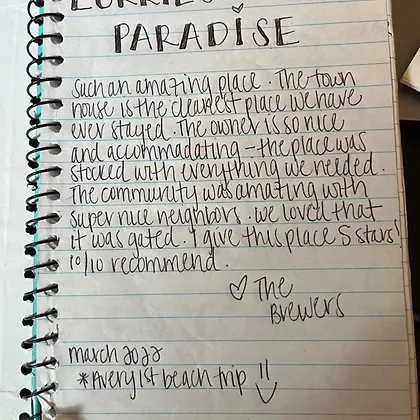 PARADISE
Such an amazing place. The town
house is the cleanest place we have
ever stayed. The owner is so nice
and accommadating - the place was
stocked with everything we needed.
The community was amazing with
super nice neighbors. We loved that
it was gated. I give this place 5 stars!
10/10 recommend.
♡ The
Brewers
march 2022
*Avery 1st beach trip !!